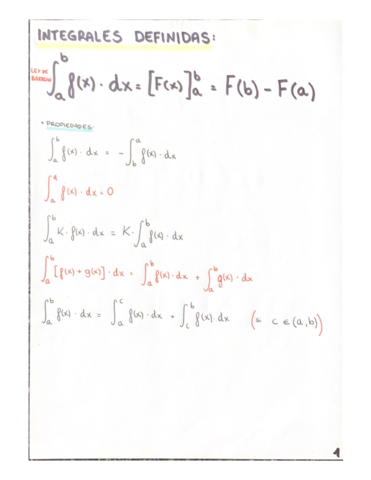 INTEGRALES DEFINIDAS:
LEY DE BARROW
∫_a^b f(x)·dx = [F(x)]_a^b = F(b) - F(a)
• PROPIEDADES:
∫_a^b f(x)·dx = -∫_b^a f(x)·dx
∫_a^a f(x)·dx = 0
∫_a^b K·f(x)·dx = K·∫_a^b f(x)·dx
∫_a^b [f(x) + g(x)]·dx = ∫_a^b f(x)·dx + ∫_a^b g(x)·dx
∫_a^b f(x)·dx = ∫_a^c f(x)·dx + ∫_c^b f(x)·dx (= c ∈ (a,b))
1